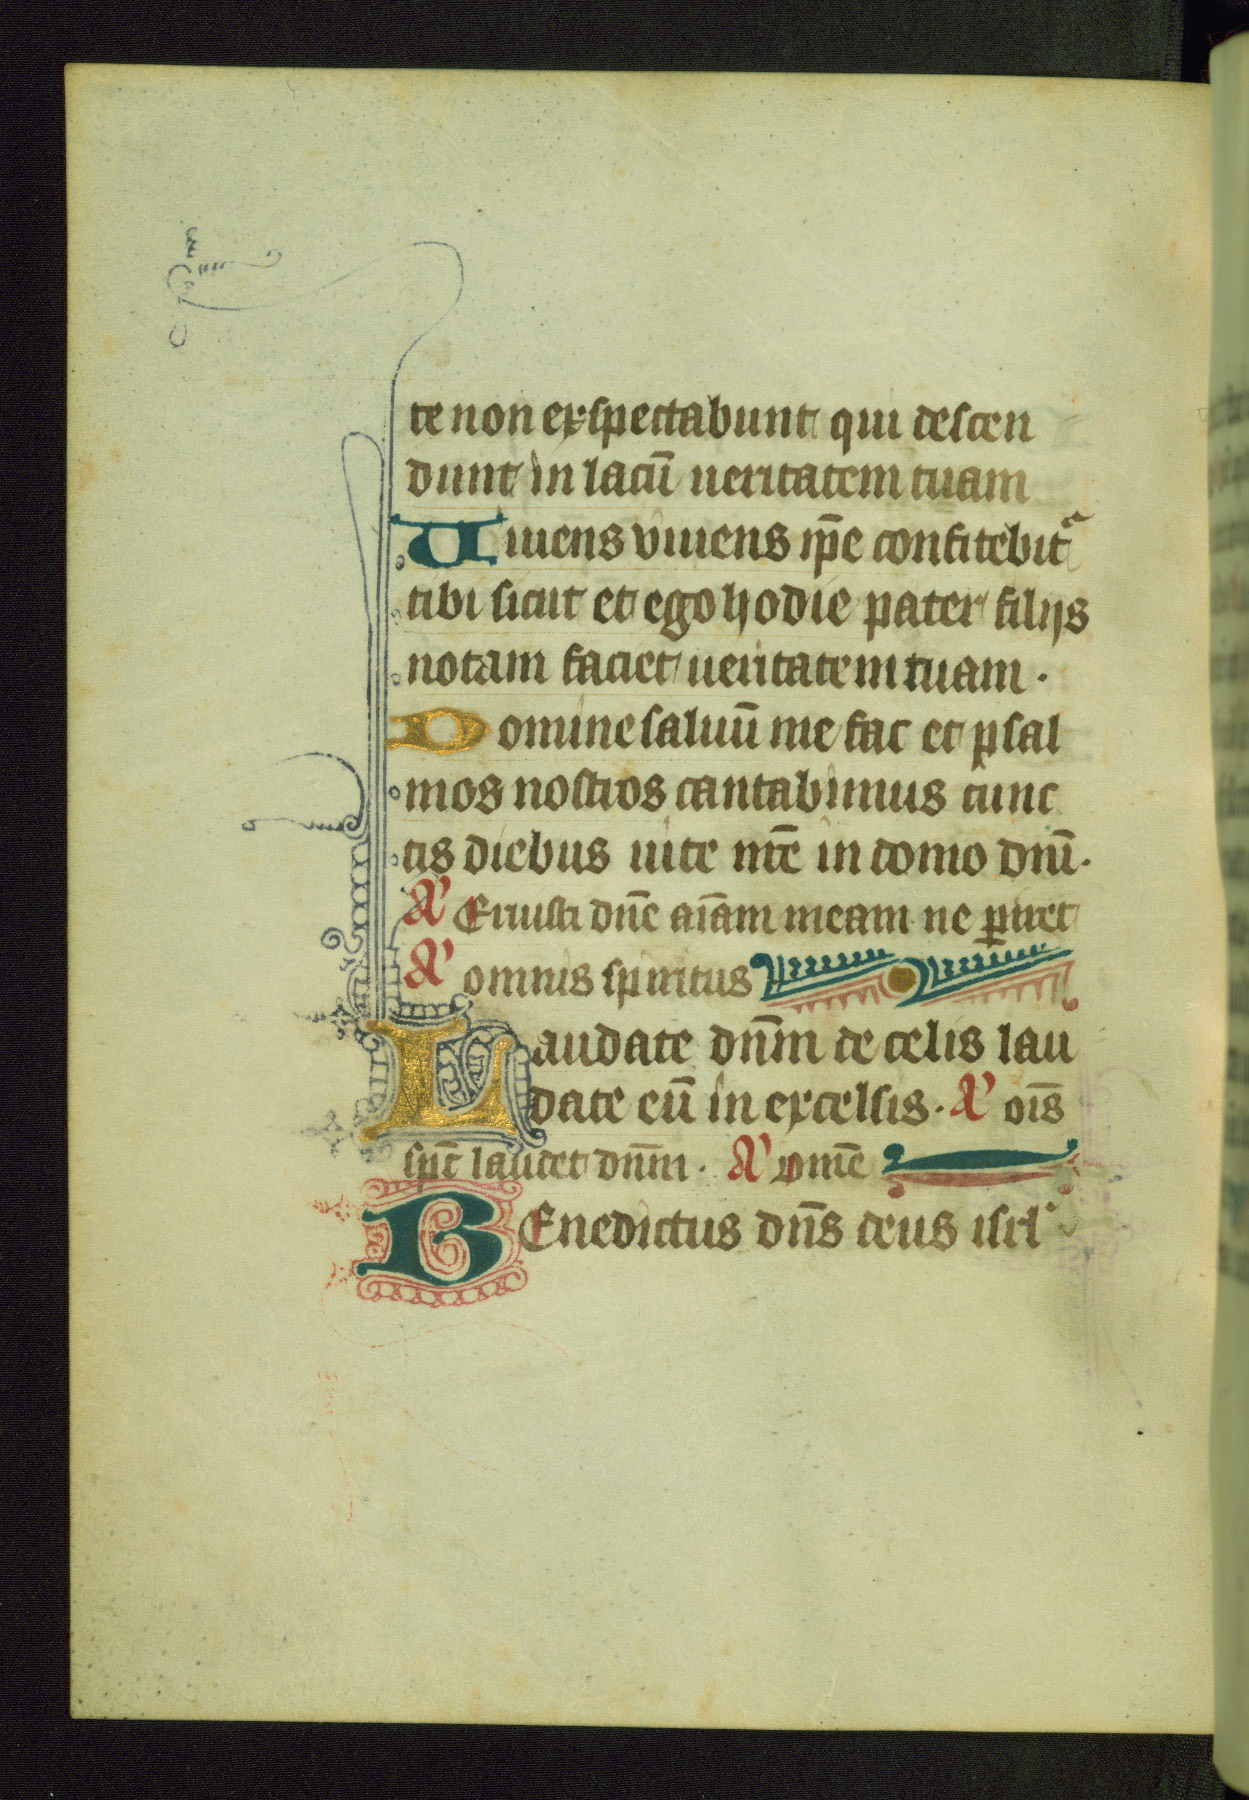 te non exspectabunt qui descen
dunt in lacū ueritatem tuam
Uiuens viuens ip̄e confitebit᷑
tibi sicut et ego hodie pater filijs
notam faciet ueritatem tuam .
Domine saluū me fac et psal
mos nostros cantabimus cunc
tis diebus uite nr̄e in domo dn̄i.
A' Eruisti dn̄e aīam meam ne ꝑiret
A' omnis spiritus
Laudate dn̄m de celis lau
date eū in excelsis. A' oīs
sp̄c laudet dn̄m . A'
BEnedictus dn̄s deus isrl'